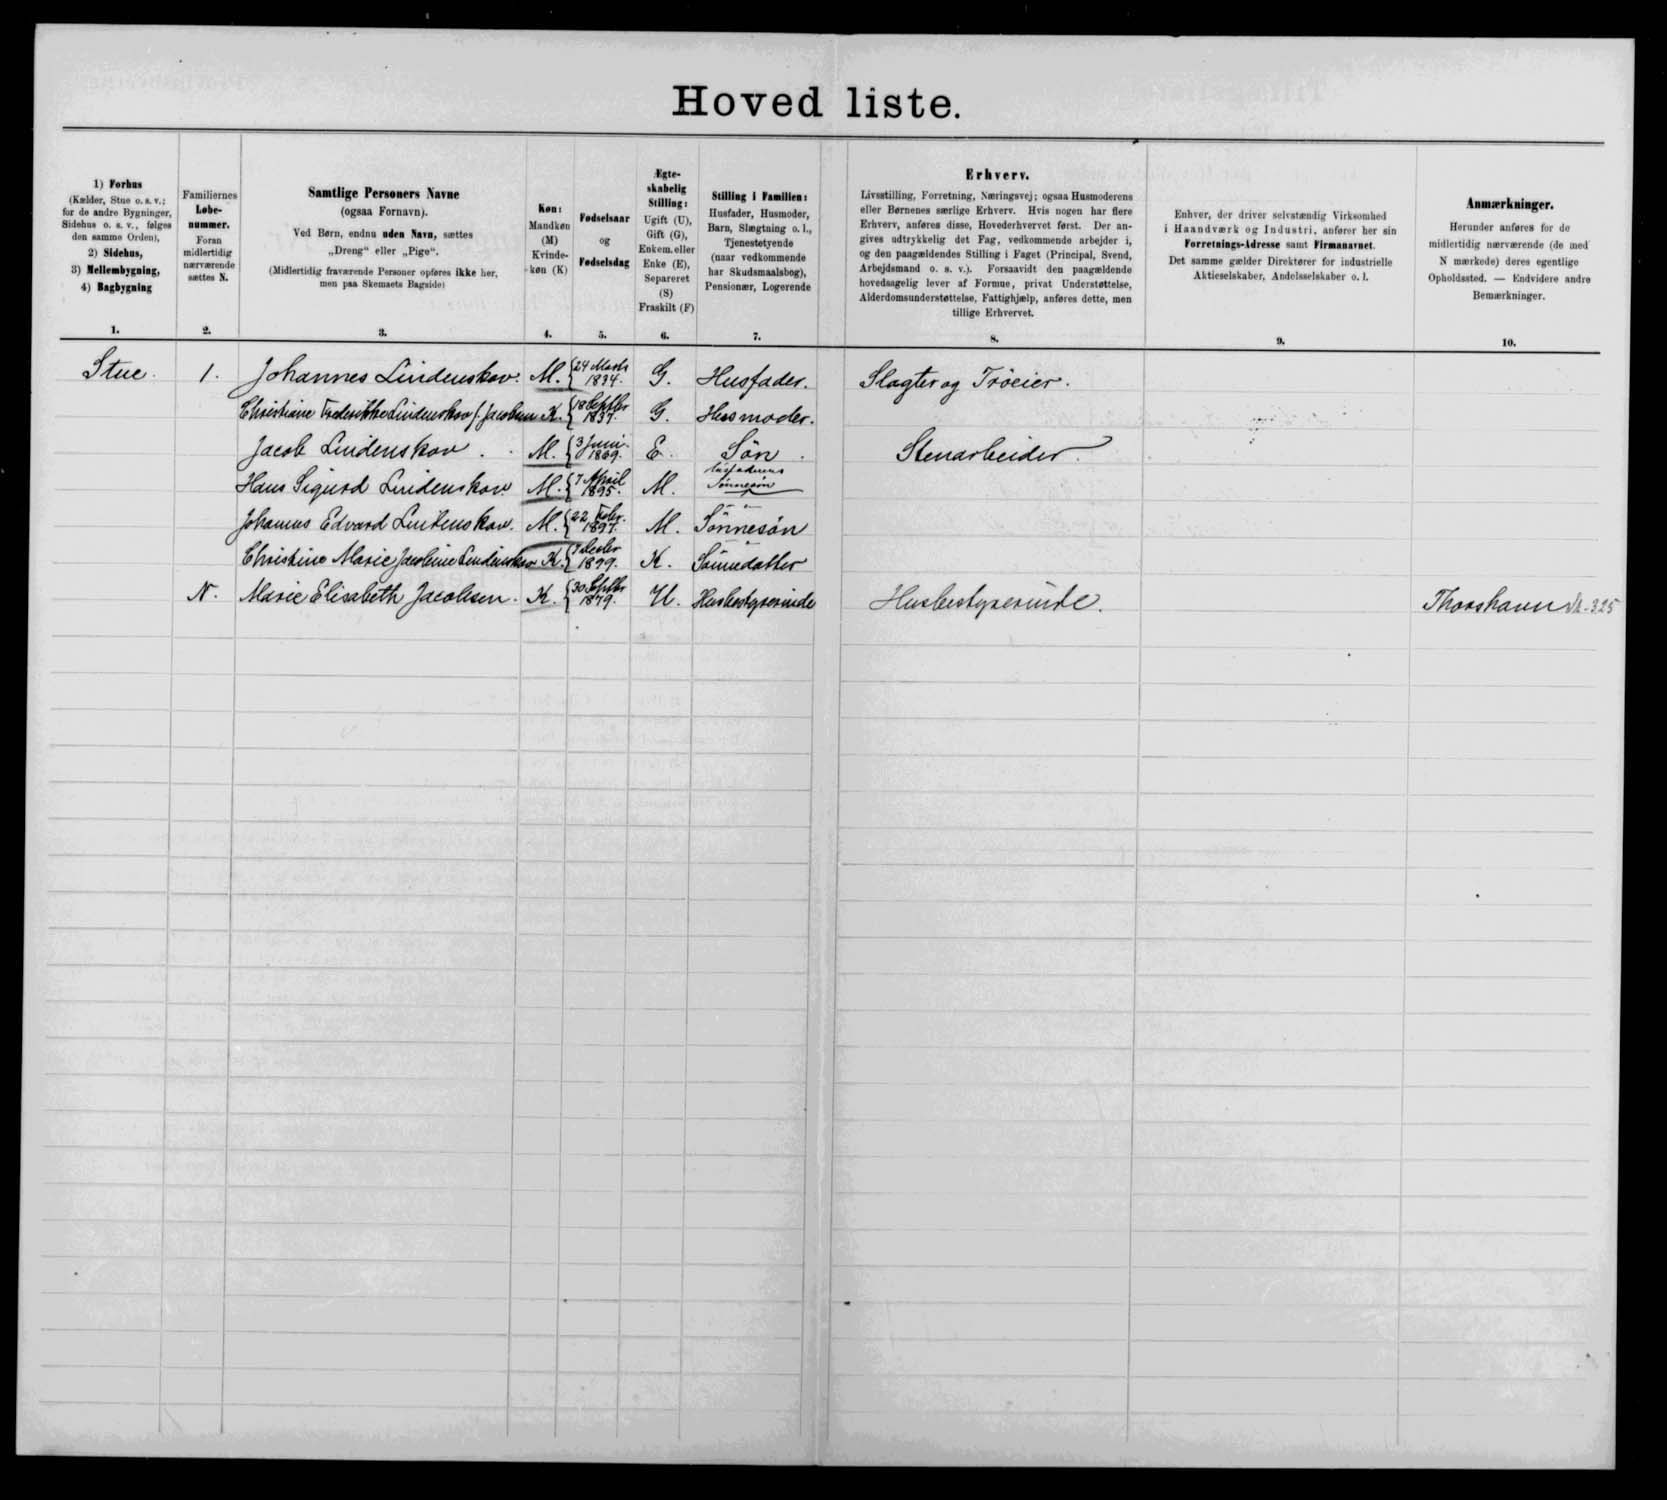 Hoved liste.
1) Forhus
(Kælder, Stue o. s. v.;
for de andre Bygninger,
Sidehus o. s. v., følges
den samme Orden),
2) Sidehus,
3) Mellembygning,
4) Bagbygning
1.
Familiernes
Løbe-
nummer.
Foran
midlertidig
nærværende
sættes N.
2.
Samtlige Personers Navne
(ogsaa Fornavn).
Ved Børn, endnu uden Navn, sættes
„Dreng“ eller „Pige“.
(Midlertidig fraværende Personer opføres ikke her,
men paa Skemaets Bagside)
3.
Køn:
Mandkøn
(M)
Kvinde-
køn (K)
4.
Fødselsaar
og
Fødselsdag
5.
Ægte-
skabelig
Stilling:
Ugift (U),
Gift (G),
Enkem. eller
Enke (E),
Separeret
(S)
Fraskilt (F)
6.
Stilling i Familien:
Husfader, Husmoder,
Barn, Slægtning o. l.,
Tjenestetyende
(naar vedkommende
har Skudsmaalsbog),
Pensionær, Logerende
7.
Erhverv.
Livsstilling, Forretning, Næringsvej; ogsaa Husmoderens
eller Børnenes særlige Erhverv. Hvis nogen har flere
Erhverv, anføres disse, Hovederhvervet først. Der an-
gives udtrykkelig det Fag, vedkommende arbejder i,
og den paagældendes Stilling i Faget (Principal, Svend,
Arbejdsmand o. s. v.). Forsaavidt den paagældende
hovedsagelig lever af Formue, privat Understøttelse,
Alderdomsunderstøttelse, Fattighjælp, anføres dette, men
tillige Erhvervet.
8.
Enhver, der driver selvstændig Virksomhed
i Haandværk og Industri, anfører her sin
Forretnings-Adresse samt Firmanavnet.
Det samme gælder Direktører for industrielle
Aktieselskaber, Andelsselskaber o. l.
9.
Anmærkninger.
Herunder anføres for de
midlertidig nærværende (de med
N mærkede) deres egentlige
Opholdssted. — Endvidere andre
Bemærkninger.
10.
Stue. 1. Johannes Lindenskov. M. 24 Marts 1834. G. Husfader. Slagter og Trøeier.
Christiane Frederikke Lindenskov f. Jacobsen K. 18 Septbr 1837. G. Husmoder.
Jacob Lindenskov. M. 3 Juni 1869. E. Søn. Stenarbeider.
Hans Sigurd Lindenskov. M. 7 April 1895. M. Husfaderens Sønnesøn
Johannes Edvard Lindenskov. M. 22 Febr. 1897. M. Sønnesøn
Christine Marie Jacobine Lindenskov K. 7 1899. K. Sønnedatter
N. Marie Elisabeth Jacobsen. K. 30 Septbr 1879. U. Husbestyrerinde Husbestyrerinde. Thorshavn 325